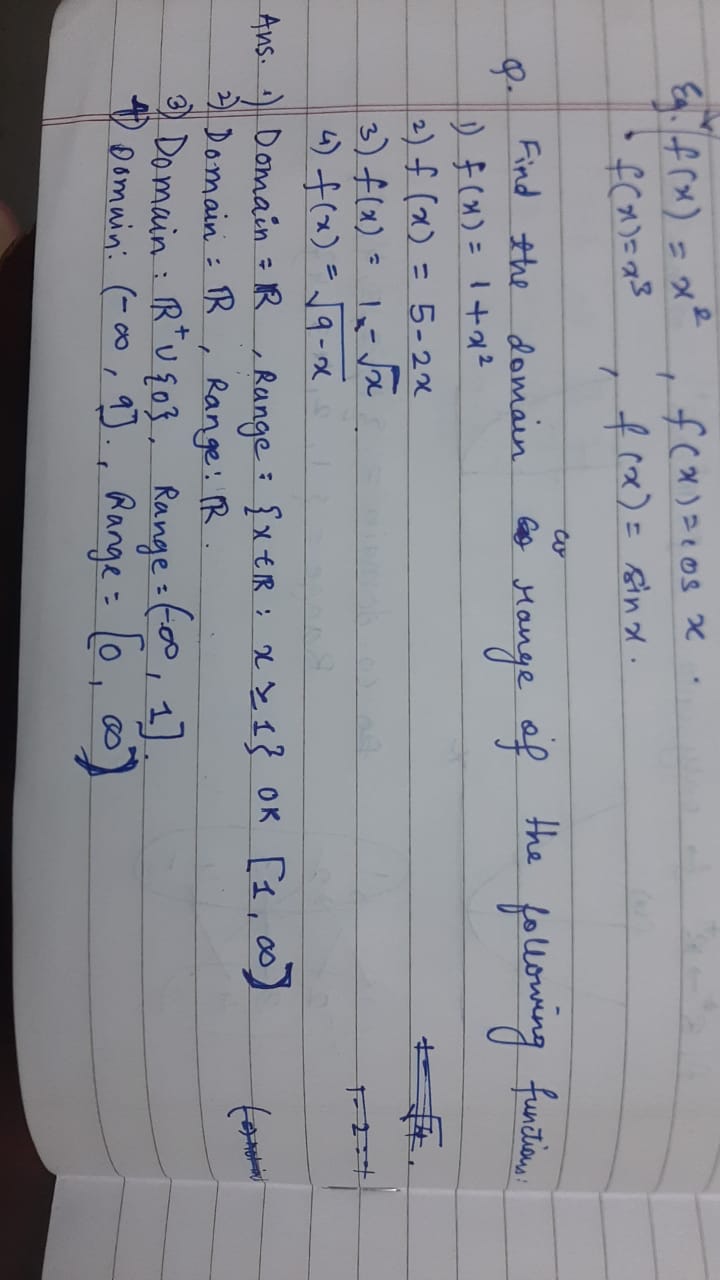 Eg. f(x) = x², f(x) = cos x.
• f(x) = x³, f(x) = sin x.
Q. Find the domain & range of the following functions:
1) f(x) = 1 + x²
2) f(x) = 5 - 2x
3) f(x) = 1 - √x
4) f(x) = √9-x
Ans. 1) Domain = ℝ, Range = {x ∈ ℝ : x ≥ 1} OR [1, ∞)
2) Domain = ℝ, Range: ℝ.
3) Domain: ℝ⁺ ∪ {0}, Range = (-∞, 1].
4) Domain: (-∞, 9]., Range = [0, ∞)
1-2=-1